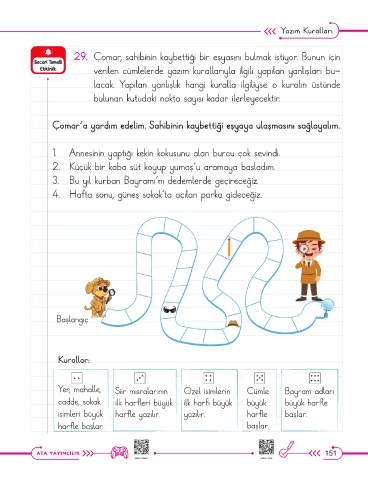 Yazım Kuralları
Beceri Temelli
Etkinlik
29. Çomar, sahibinin kaybettiği bir eşyasını bulmak istiyor. Bunun için
verilen cümlelerde yazım kurallarıyla ilgili yapılan yanlışları bu-
lacak. Yapılan yanlışlık hangi kuralla ilgiliyse o kuralın üstünde
bulunan kutudaki nokta sayısı kadar ilerleyecektir.
Çomar'a yardım edelim. Sahibinin kaybettiği eşyaya ulaşmasını sağlayalım.
1. Annesinin yaptığı kekin kokusunu alan burcu çok sevindi.
2. Küçük bir kaba süt koyup yumoş'u aramaya başladım.
3. Bu yıl kurban Bayramı'nı dedemlerde geçireceğiz.
4. Hafta sonu, güneş sokak'ta açılan parka gideceğiz.
Başlangıç
Kurallar:
Yer, mahalle,
cadde, sokak
isimleri büyük
harfle başlar.
Şiir mısralarının
ilk harfleri büyük
harfle yazılır.
Özel isimlerin
ilk harfi büyük
yazılır.
Cümle
büyük
harfle
başlar.
Bayram adları
büyük harfle
başlar.
ATA YAYINCILIK
151